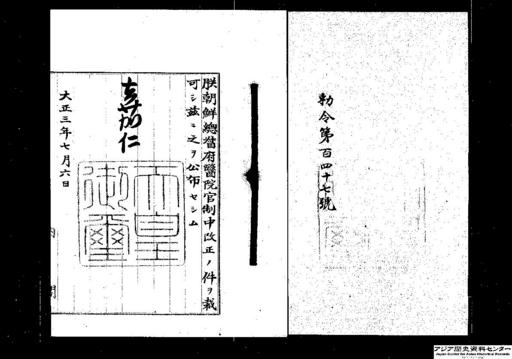 勅令第百四十七號
朕朝鮮總督府醫院官制中改正ノ件ヲ裁
可シ茲ニ之ヲ公布セシム
嘉仁
天皇
御璽
大正三年七月六日
内閣
アジア歴史資料センター
Japan Center for Asian Historical Records